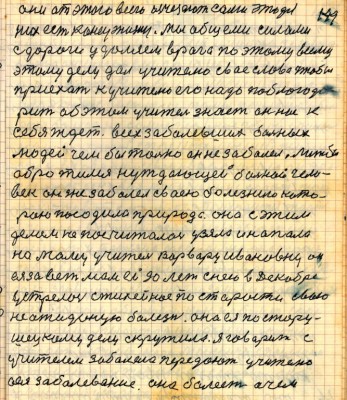 они от этого всего очезают сами этоди
них ест конму жизн. мы общеми силами
здороги удоляем врага поэтому всиму
этому делу дал учителю свае слова чтобы
приехат к учителю его надо поблогода
рит об этом учител знает он нас к
себя ждет. всех забалевших больных
людей чем бы толко он не забалел,
обротимся нуждающей больной чело-
век он же забалел сваею болезнию кото-
раю посодила природа. она с этим
делом не посчиталас узяла и напала
на мамы учител варвару ивановну
елзавет мам ей 90 лет с нею в декобре
устрелос стихебное по старости, сваю
неожиданую болезн. она ея по стару-
шецкому делу скрутила. я говорит с
учителем забалела передают учителю
ея забалевание. она болеет а чем